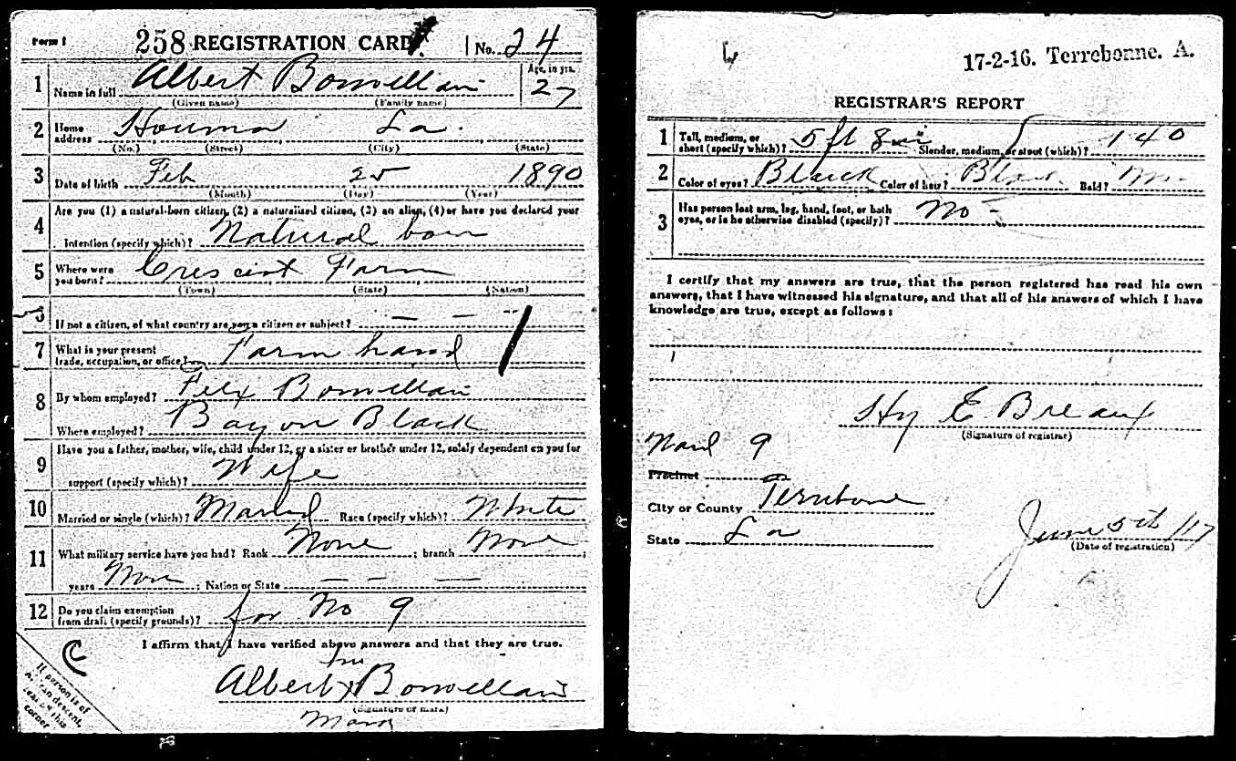 Form 1 258 REGISTRATION CARD No. 24
1 Name in full Albert Bonvillain Age, in yrs. 27
(Given name) (Family name)
2 Home address Houma La.
(No.) (Street) (City) (State)
3 Date of birth Feb 25 1890
(Month) (Day) (Year)
4 Are you (1) a natural-born citizen, (2) a naturalized citizen, (3) an alien, (4) or have you declared your
intention (specify which)? Natural born
5 Where were you born? Crescint Farm
(Town) (State) (Nation)
If not a citizen, of what country are you a citizen or subject? — — —
7 What is your present trade, occupation, or office? Farm hand
8 By whom employed? Felix Bonvillain
Where employed? Bayou Black
9 Have you a father, mother, wife, child under 12, or a sister or brother under 12, solely dependent on you for
support (specify which)? Wife
10 Married or single (which)? Married Race (specify which)? White
11 What military service have you had? Rank None ; branch None ;
years None ; Nation or State — — —
12 Do you claim exemption from draft (specify grounds)? for No 9
I affirm that I have verified above answers and that they are true.
C
his
Albert x Bonvillain
(Signature or mark)
Mark
If person is of
African descent,
tear off this
corner
17-2-16. Terrebonne. A.
REGISTRAR'S REPORT
1 Tall, medium, or short (specify which)? 5 ft 8 in Slender, medium, or stout (which)? 140
2 Color of eyes? Black Color of hair? Black Bald? No
3 Has person lost arm, leg, hand, foot, or both eyes, or is he otherwise disabled (specify)? No -
I certify that my answers are true, that the person registered has read his own
answers, that I have witnessed his signature, and that all of his answers of which I have
knowledge are true, except as follows:
Hy E. Breaux
(Signature of registrar)
Ward 9
Precinct
City or County Terrebone
State La
June 5th /17
(Date of registration)